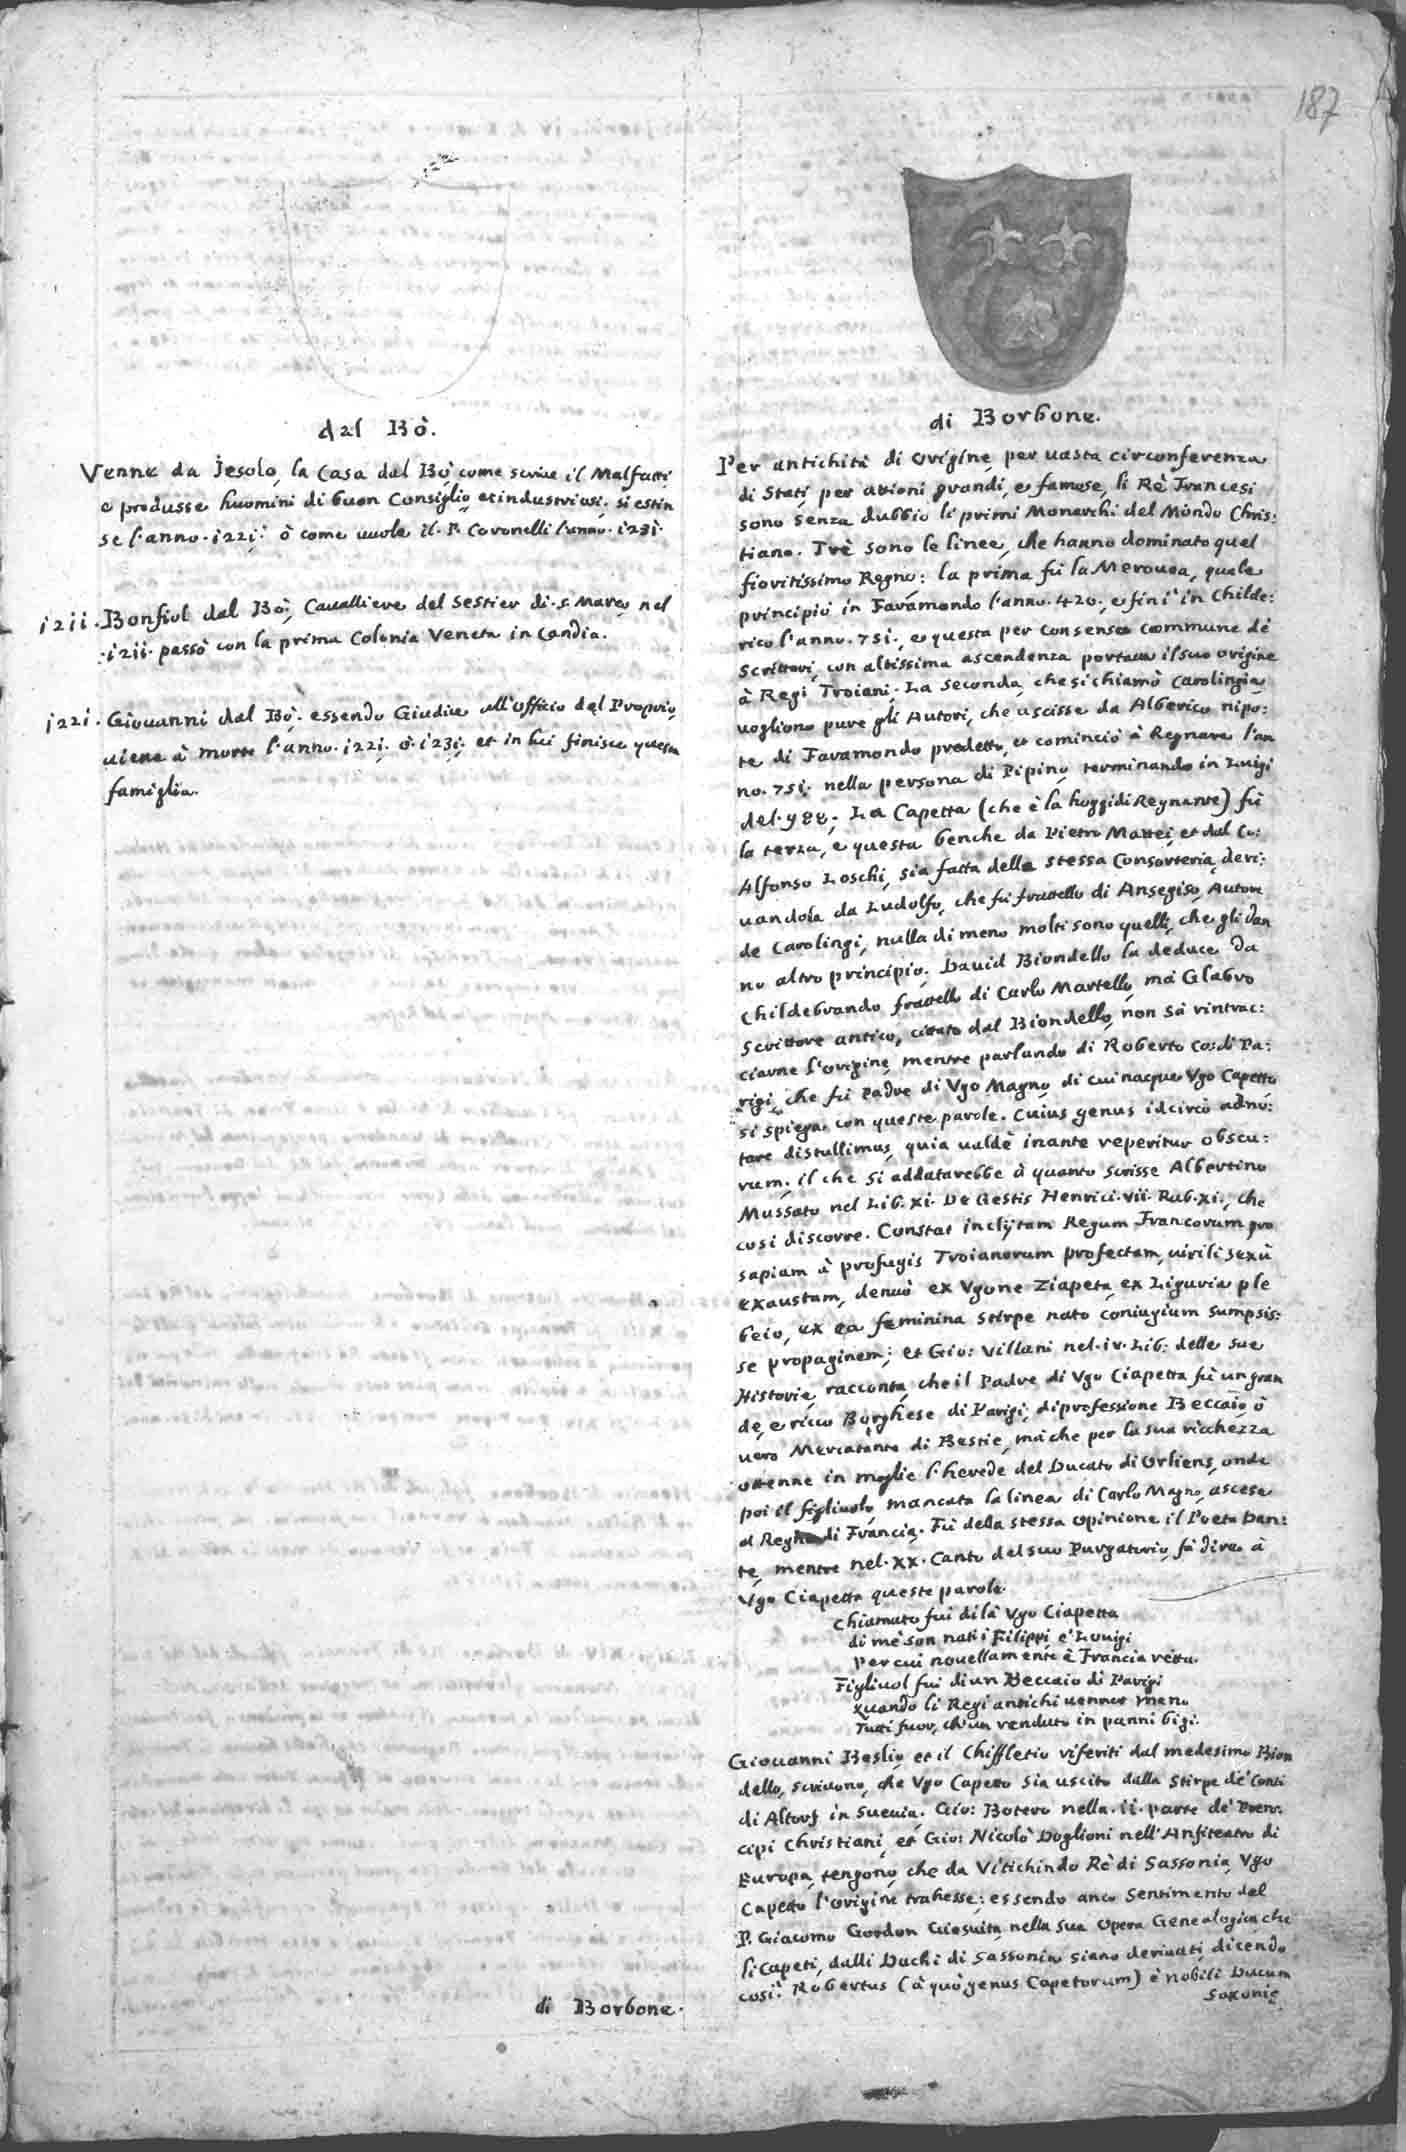 187
dal Bò.
Venne da Jesolo, la Casa dal Bò, come scriue il Malfatti
e produsse huomini di buon Consiglio, et industriosi; si estin
se l'anno. 1221; ò come uuole il. P. Coronelli l'anno. 1231.
1211. Bonfiol dal Bò; Caualliere del Sestier di. S. Marco, nel
.1211. passò con la prima Colonia Veneta in Candia.
1221. Giouanni dal Bò. essendo Giudice all'Officio del Proprio,
uiene à morte l'anno. 1221. ò. 1231; et in lui finisce questa
famiglia.
di Borbone.
di Borbone.
Per antichità di origine, per uasta circonferenza
di Stati, per attioni grandi, e famose, li Rè Francesi
sono senza dubbio li primi Monarchi del Mondo Chris:
tiano. Trè sono le linee, che hanno dominato quel
fioritissimo Regno: la prima fù la Merouea, quale
principiò in Faramondo l'anno. 420., e finì in Childe:
rico l'anno. 751., e questa per consenso commune dè
Scrittori, con altissima ascendenza portaua il suo origine
à Regi Troiani. La seconda, che si chiamò Carolingia,
uogliono pure gli Autori, che uscisse da Alberico nipo:
te di Faramondo predetto, et cominciò à Regnare l'an
no. 751. nella persona di Pipino, terminando in Luigi
del. 988. La Capetta (che è la hoggidi Regnante) fù
la terza, e questa benche da Pietro Mattei, et dal Co:
Alfonso Loschi, sia fatta della stessa Consorteria, deri:
uandola da Ludolfo, che fù fratello di Ansegiso, Autore
de Carolingi, nulla di meno molti sono quelli, che gli dan
no altro principio. Dauid Biondello la deduce da
Childebrando fratello di Carlo Martello, mà Glabro
Scrittore antico, citato dal Biondello, non sà rintrac:
ciarne l'origine, mentre parlando di Roberto Co: di Pa:
rigi, che fù Padre di Vgo Magno, di cui nacque Vgo Capetto
si spiega con queste parole. Cuius genus idcircò adno:
tare distullimus, quia ualdè inante reperitur obscu:
rum; il che si addatarebbe à quanto scrisse Albertino
Mussato nel Lib. XI. De Gestis Henrici. VII. Rub. XI., che
così discorre. Constat inclÿtam Regum Francorum pro
sapiam à profugis Troianorum profectam, uirili sexù
exaustam, denuò ex Vgone Ziapeta, ex Liguria ple
beio, ex ea feminina stirpe nato coniugium sumpsis:
se propaginem; et Gio: Villani nel. IV. Lib: delle sue
Historie, racconta, che il Padre di Vgo Ciapetta fù un gran
de, e ricco Borghese di Parigi, di professione Beccaio, ò
uero Mercatante di Bestie, mà che per la sua ricchezza
ottenne in moglie l'herede del Ducato di Orliens, onde
poi il figliuolo, mancata la linea di Carlo Magno, ascese
al Regno di Francia. Fù della stessa opinione il Poeta Dan:
te, mentre nel. XX. Canto del suo Purgatorio, fà dire à
Vgo Ciapetta queste parole.
Chiamato fui di là Vgo Ciapetta
di mè son nati i Filippi, e' Louigi
Per cui nouellamente è Francia retta.
Figliuol fui di un Beccaio di Parigi
quando li Regi antichi uenner meno
Tutti fuor, ch'un renduto in panni bigi.
Giouanni Beslio, et il Chiffletio riferiti dal medesimo Bion
dello, scriuono, che Vgo Capetto sia uscito dalla Stirpe de' Conti
di Altorf in Sueuia. Gio: Botero nella. II. parte de' Pren:
cipi Christiani, et Gio: Nicolò Doglioni nell'Anfiteatro di
Europa, tengono, che da Vitichindo Rè di Sassonia, Vgo
Capetto l'origine trahesse; essendo anco sentimento del
P. Giacomo Gordon Giesuita, nella sua Opera Genealogica, che
li Capeti, dalli Duchi di Sassonia siano deriuati, dicendo
così: Robertus (à quò genus Capetorum) è nobili Ducum
Saxonie